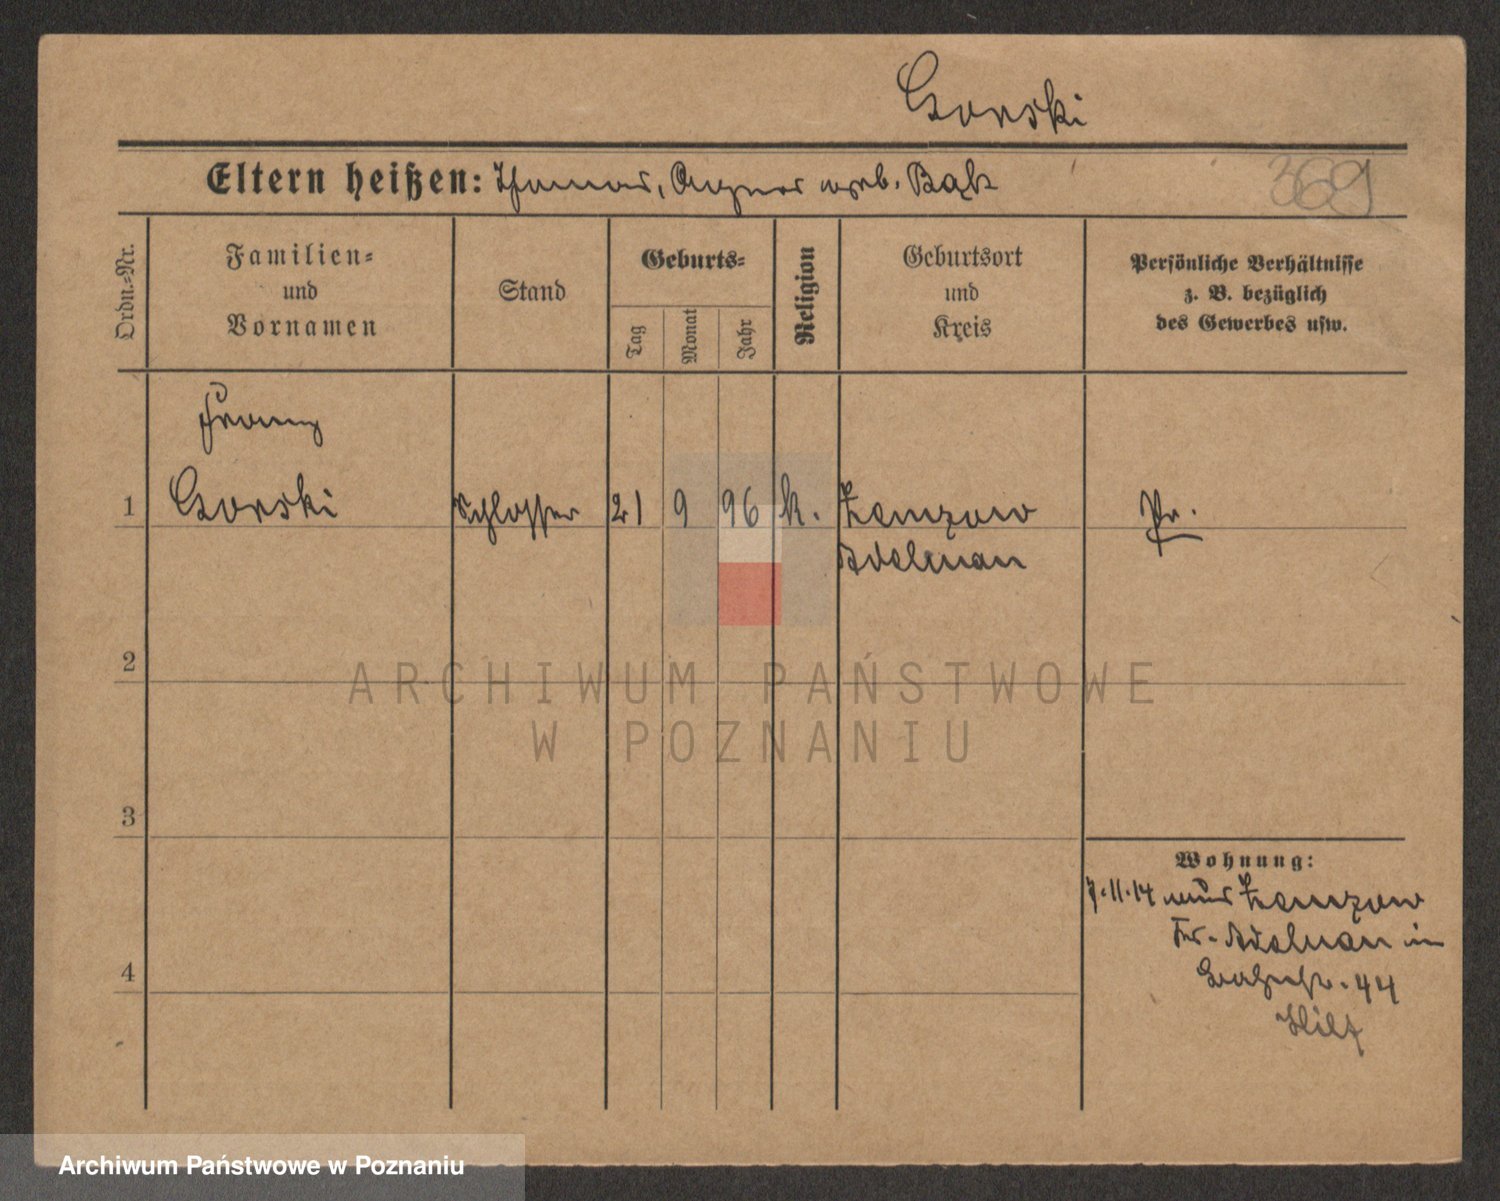 Gorski
Eltern heißen: Thomas, Agnes geb. Bąk
369
Ordn.-Nr.
Familien-
und
Vornamen
Stand
Geburts-
Tag
Monat
Jahr
Religion
Geburtsort
und
Kreis
Persönliche Verhältnisse
z. B. bezüglich
des Gewerbes usw.
Franz
1 Gorski Schlosser 21 9 96 k. Pr.
Adelnau
2
3
4
Wohnung:
7.11.14 aus
Kr. Adelnau in
44
ARCHIWUM PAŃSTWOWE
W POZNANIU
Archiwum Państwowe w Poznaniu